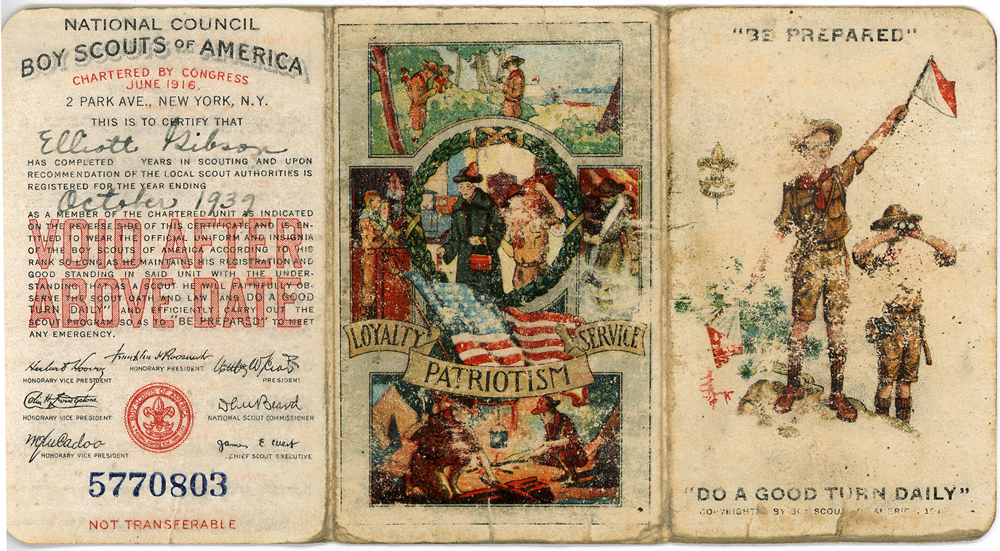 NATIONAL COUNCIL
BOY SCOUTS OF AMERICA
CHARTERED BY CONGRESS
JUNE 1916.
2 PARK AVE., NEW YORK, N.Y.
THIS IS TO CERTIFY THAT
Elliott Gibson
HAS COMPLETED YEARS IN SCOUTING AND UPON
RECOMMENDATION OF THE LOCAL SCOUT AUTHORITIES IS
REGISTERED FOR THE YEAR ENDING
October 1939
AS A MEMBER OF THE CHARTERED UNIT AS INDICATED
ON THE REVERSE SIDE OF THIS CERTIFICATE AND IS EN-
TITLED TO WEAR THE OFFICIAL UNIFORM AND INSIGNIA
OF THE BOY SCOUTS OF AMERICA ACCORDING TO HIS
RANK SO LONG AS HE MAINTAINS HIS REGISTRATION AND
GOOD STANDING IN SAID UNIT WITH THE UNDER-
STANDING THAT AS A SCOUT HE WILL FAITHFULLY OB-
SERVE THE SCOUT OATH AND LAW AND DO A GOOD
TURN DAILY AND EFFICIENTLY CARRY OUT THE
SCOUT PROGRAM SO AS TO "BE PREPARED" TO MEET
ANY EMERGENCY.
VOID AFTER
ABOVE DATE
Herbert Hoover
HONORARY VICE PRESIDENT
Franklin D Roosevelt
HONORARY PRESIDENT
Walter W Head
PRESIDENT
Colin H Livingstone
HONORARY VICE PRESIDENT
BOY SCOUTS OF AMERICA
Dan Beard
NATIONAL SCOUT COMMISSIONER
W G McAdoo
HONORARY VICE PRESIDENT
James E West
CHIEF SCOUT EXECUTIVE
5770803
NOT TRANSFERABLE
LOYALTY
SERVICE
PATRIOTISM
"BE PREPARED"
"DO A GOOD TURN DAILY"
COPYRIGHT BY BOY SCOUTS OF AMERICA